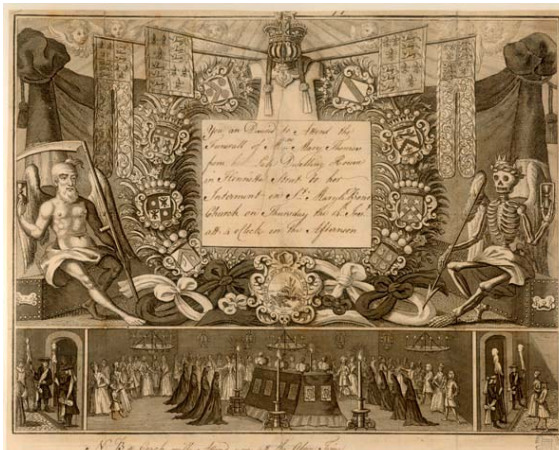 You are Desired to Attend the
Funerall of Mrs Mary Thomson
from her Late Dwelling House
in Henrietta Street to her
Interment in St. Mary le Bone
Church on Thursday the
att o Clock in the Afternoon
N. B. a Coach will attend you at the Above Time